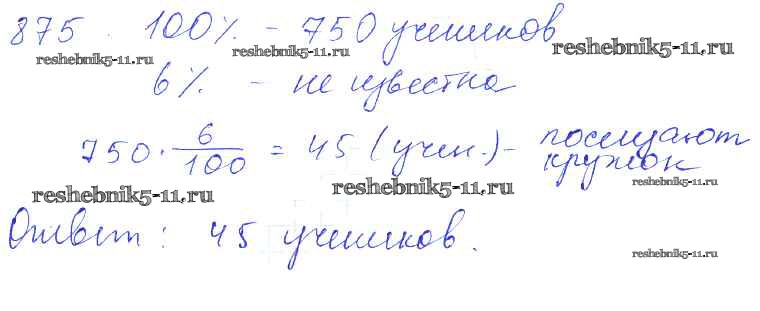 875. 100% - 750 учеников
reshebnik5-11.ru reshebnik5-11.ru reshebnik5-11.ru
6% - не известна
750 · 6/100 = 45 (учен.) - посещают кружок
reshebnik5-11.ru reshebnik5-11.ru reshebnik5-11.ru
Ответ: 45 учеников.
reshebnik5-11.ru